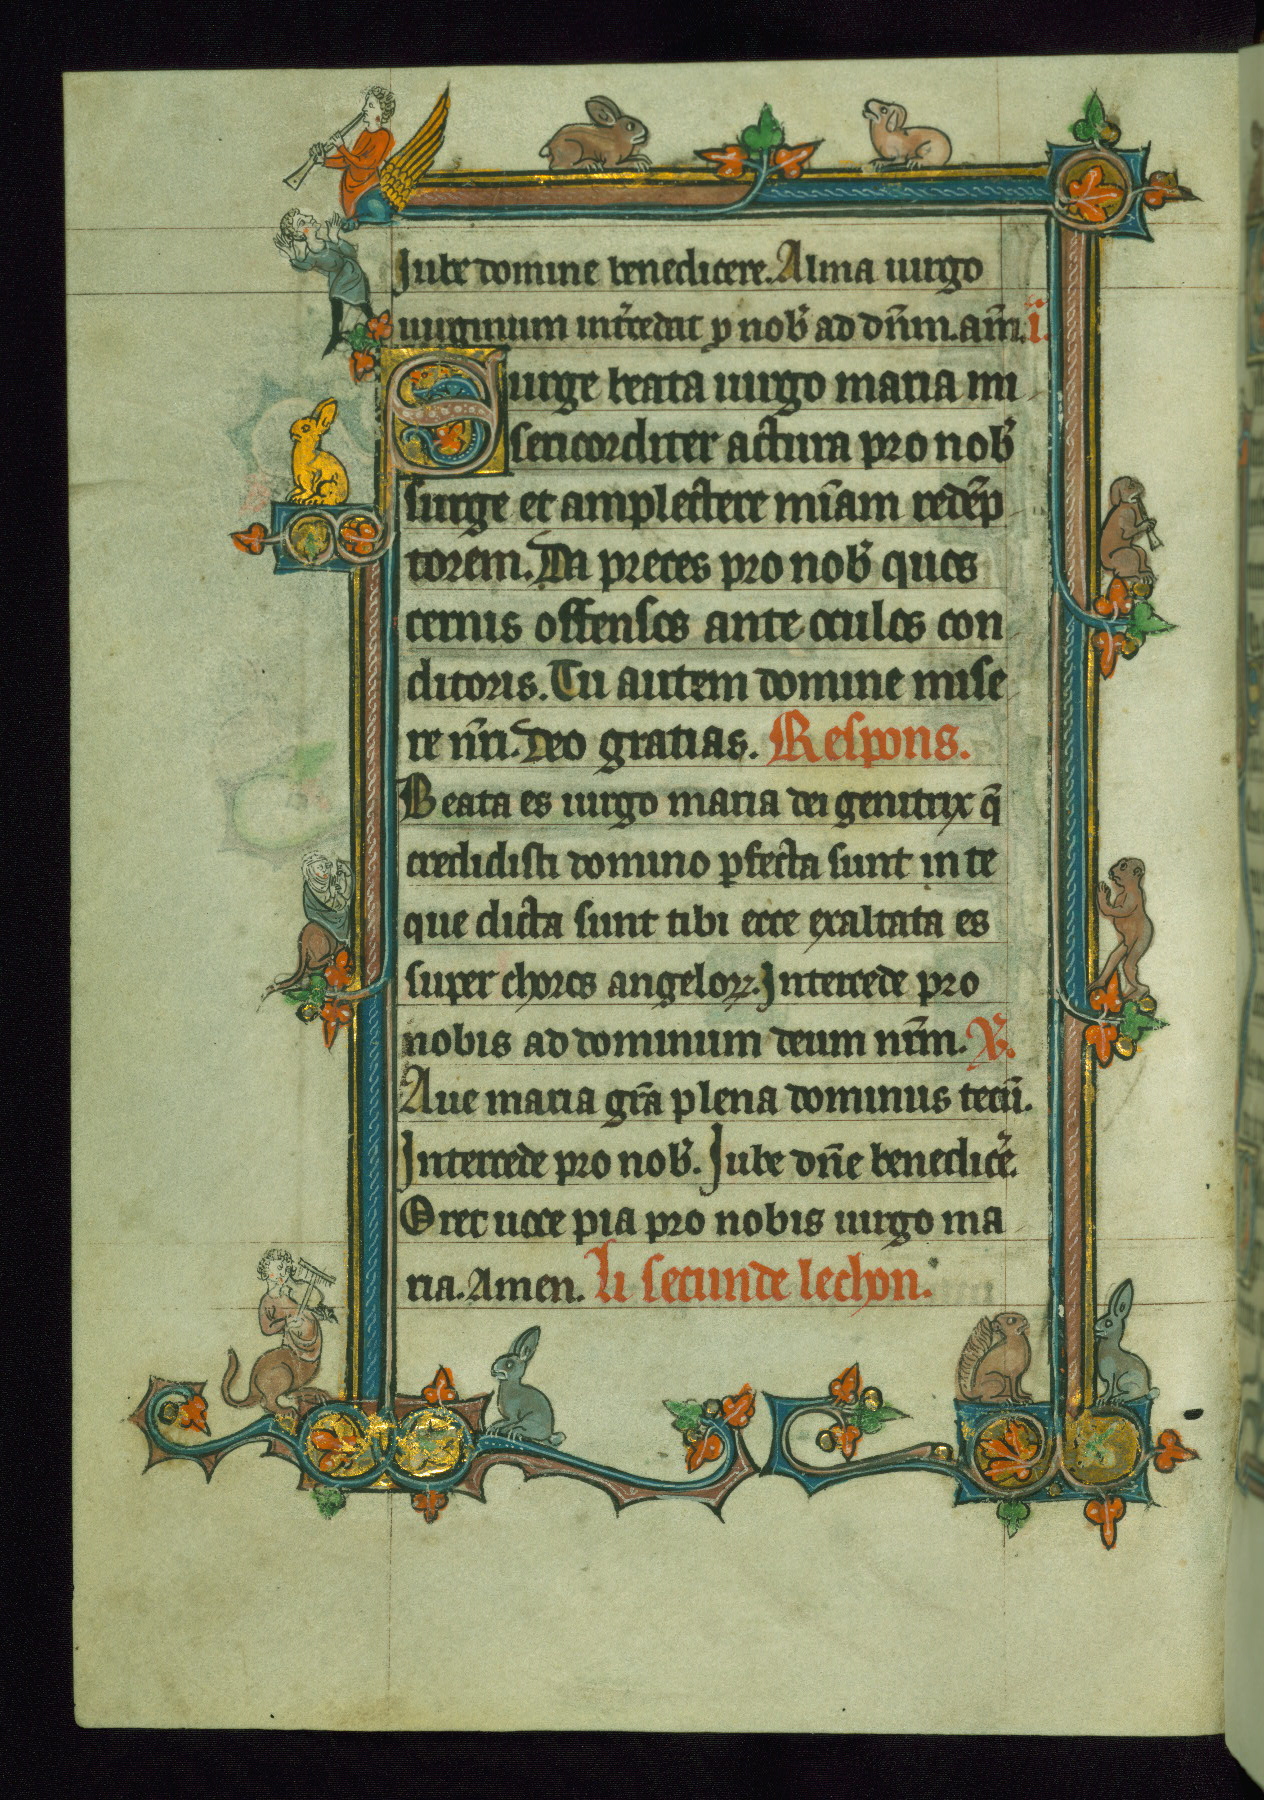 Iube domine benedicere. Alma uirgo
uirginum int̛cedat ꝓ nob̛ ad dn̄m. am̄. i.
Surge beata uirgo maria mi
sericorditer actura pro nob̛
surge et amplectere mīam redēp
torem. Da preces pro nob̛ quos
cernis offensos ante oculos con
ditoris. Tu autem domine mise
re nr̄i. deo gratias. Respons.
Beata es uirgo maria dei genitrix q̄
credidisti domino ꝑfecta sunt in te
que dicta sunt tibi ecce exaltata es
super choros angeloꝝ. Intercede pro
nobis ad dominum deum nr̄m. ℣.
Aue maria grā plena dominus tecū.
Intercede pro nob̛. Iube dn̄e benedic̛e.
Oret uoce pia pro nobis uirgo ma
ria. Amen. Li secunde lechon.